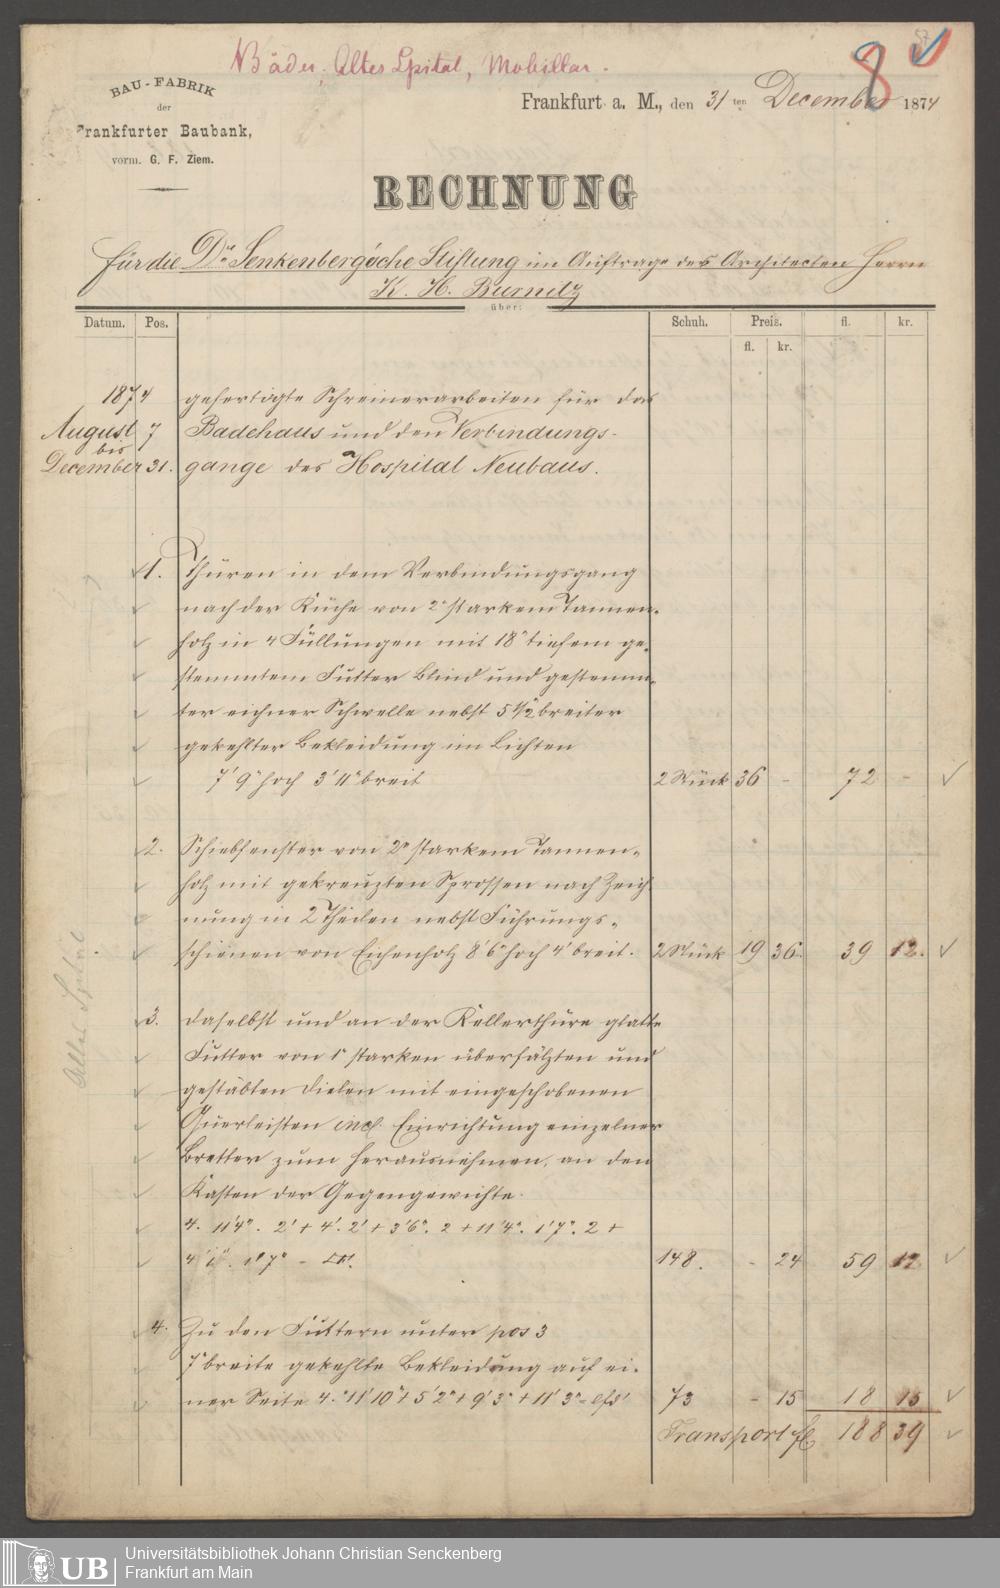 Bäder, Altes Spital, Mobiliar.
8
BAU-FABRIK
der
Frankfurter Baubank,
vorm. G. F. Ziem.
Frankfurt a. M., den 31 ten December 1874
RECHNUNG
für die Dr. Senkenberg'sche Stiftung im Auftrage des Architecten Herrn
K. H. Burnitz
über:
Datum. Pos. Schuh. Preis. fl. kr.
fl. kr.
1874 gefertigte Schreinerarbeiten für das
August 7 Badehaus und den Verbindungs-
bis
December 31. gange des Hospital Neubaus.
1. Thüren in dem Verbindungsgang
nach der Küche von 2" starkem Tannen-
holz in 4 Füllungen mit 18" tiefem ge-
stemmtem Futter Blind und gestemm-
ter eichner Schwelle nebst 5 1/2" breiter
gekehlter Bekleidung im Lichten
7' 9" hoch 3' 11" breit 2 Stück 36 - 72 -
2. Schiebfenster von 2" starkem Tannen-
holz mit gekreuzten Sprossen nach Zeich
nung in 2 Theilen nebst Führungs-
schienen von Eichenholz 8' 6" hoch 4' breit. 2 Stück 19 36. 39 12.
3. daselbst und an der Kellerthüre glatte
Futter von 1" starken überfälzten und
gestäbten Dielen mit eingeschobenen
Querleisten incl. Einrichtung einzelner
Bretter zum Herausnehmen, an den
Kasten der Gegengewichte.
4. 11' 4". 2' + 4'. 2' + 3' 6". 2 + 11' 4". 1' 7". 2 +
148. - 24 59 12
4. Zu den Futtern unter pos 3
7" breite gekehlte Bekleidung auf ei-
ner Seite 4. 11' 10" + 5' 2" + 9' 3" + 11' 3" = lfd' 73 - 15 18 15
Transport fl 188 39
Altes Spital
UB
Universitätsbibliothek Johann Christian Senckenberg
Frankfurt am Main